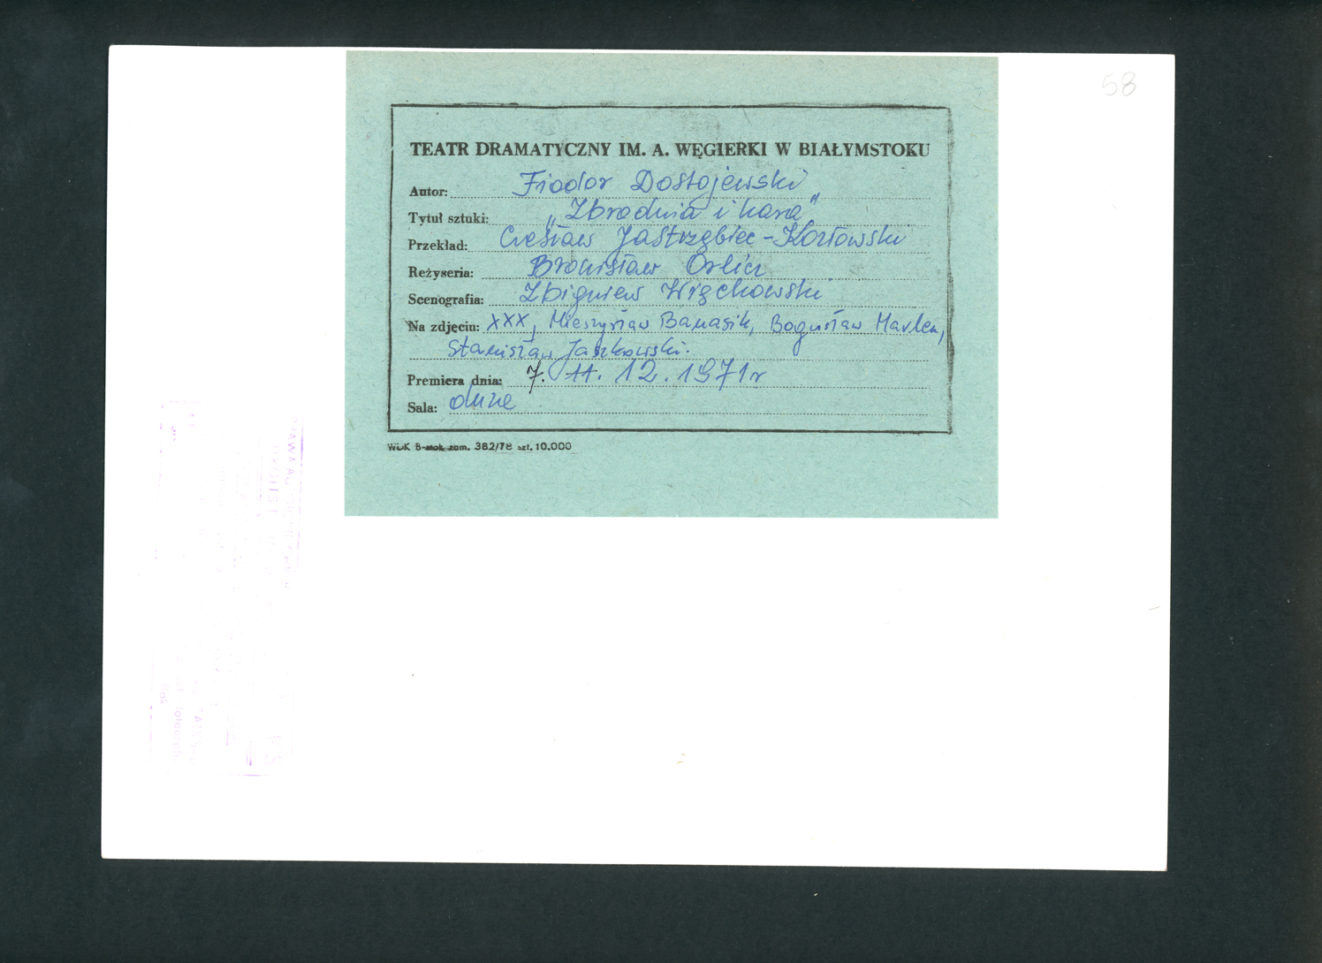 58
TEATR DRAMATYCZNY IM. A. WĘGIERKI W BIAŁYMSTOKU
Autor: Fiodor Dostojewski
Tytuł sztuki: „Zbrodnia i kara"
Przekład: Czesław Jastrzębiec-Kozłowski
Reżyseria: Bronisław Orlicz
Scenografia: Zbigniew Więckowski
Na zdjęciu: XXX, Mieczysław Banasik, Bogusław Marlen,
Stanisław Jaszkowski.
Premiera dnia: 7. 11. 12. 1971 r
Sala: duże
WDK B-stok zam. 382/78 szt. 10.000